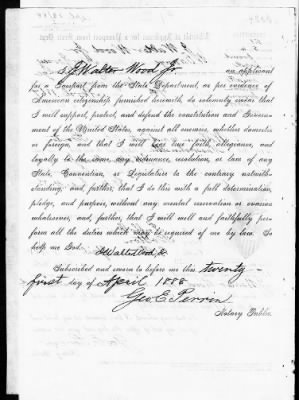 I, J. Walter Wood Jr. an applicant
for a Passport from the State Department, as per evidence of
American citizenship furnished herewith, do solemnly swear that
I will support, protect, and defend the constitution and Government
of the United States, against all enemies, whether domestic
or foreign, and that I will bear true faith, allegiance, and
loyalty to the same, any ordinance, resolution, or law of any
State, Convention, or Legislature to the contrary notwithstanding;
and further, that I do this with a full determination,
pledge, and purpose, without any mental reservation or evasion
whatsoever, and, further, that I will well and faithfully perform
all the duties which may be required of me by law. So
help me God.
J. Walter Wood, Jr.
Subscribed and sworn to before me this twenty-
first day of April 1888
Geo E. Perrin
Notary Public.